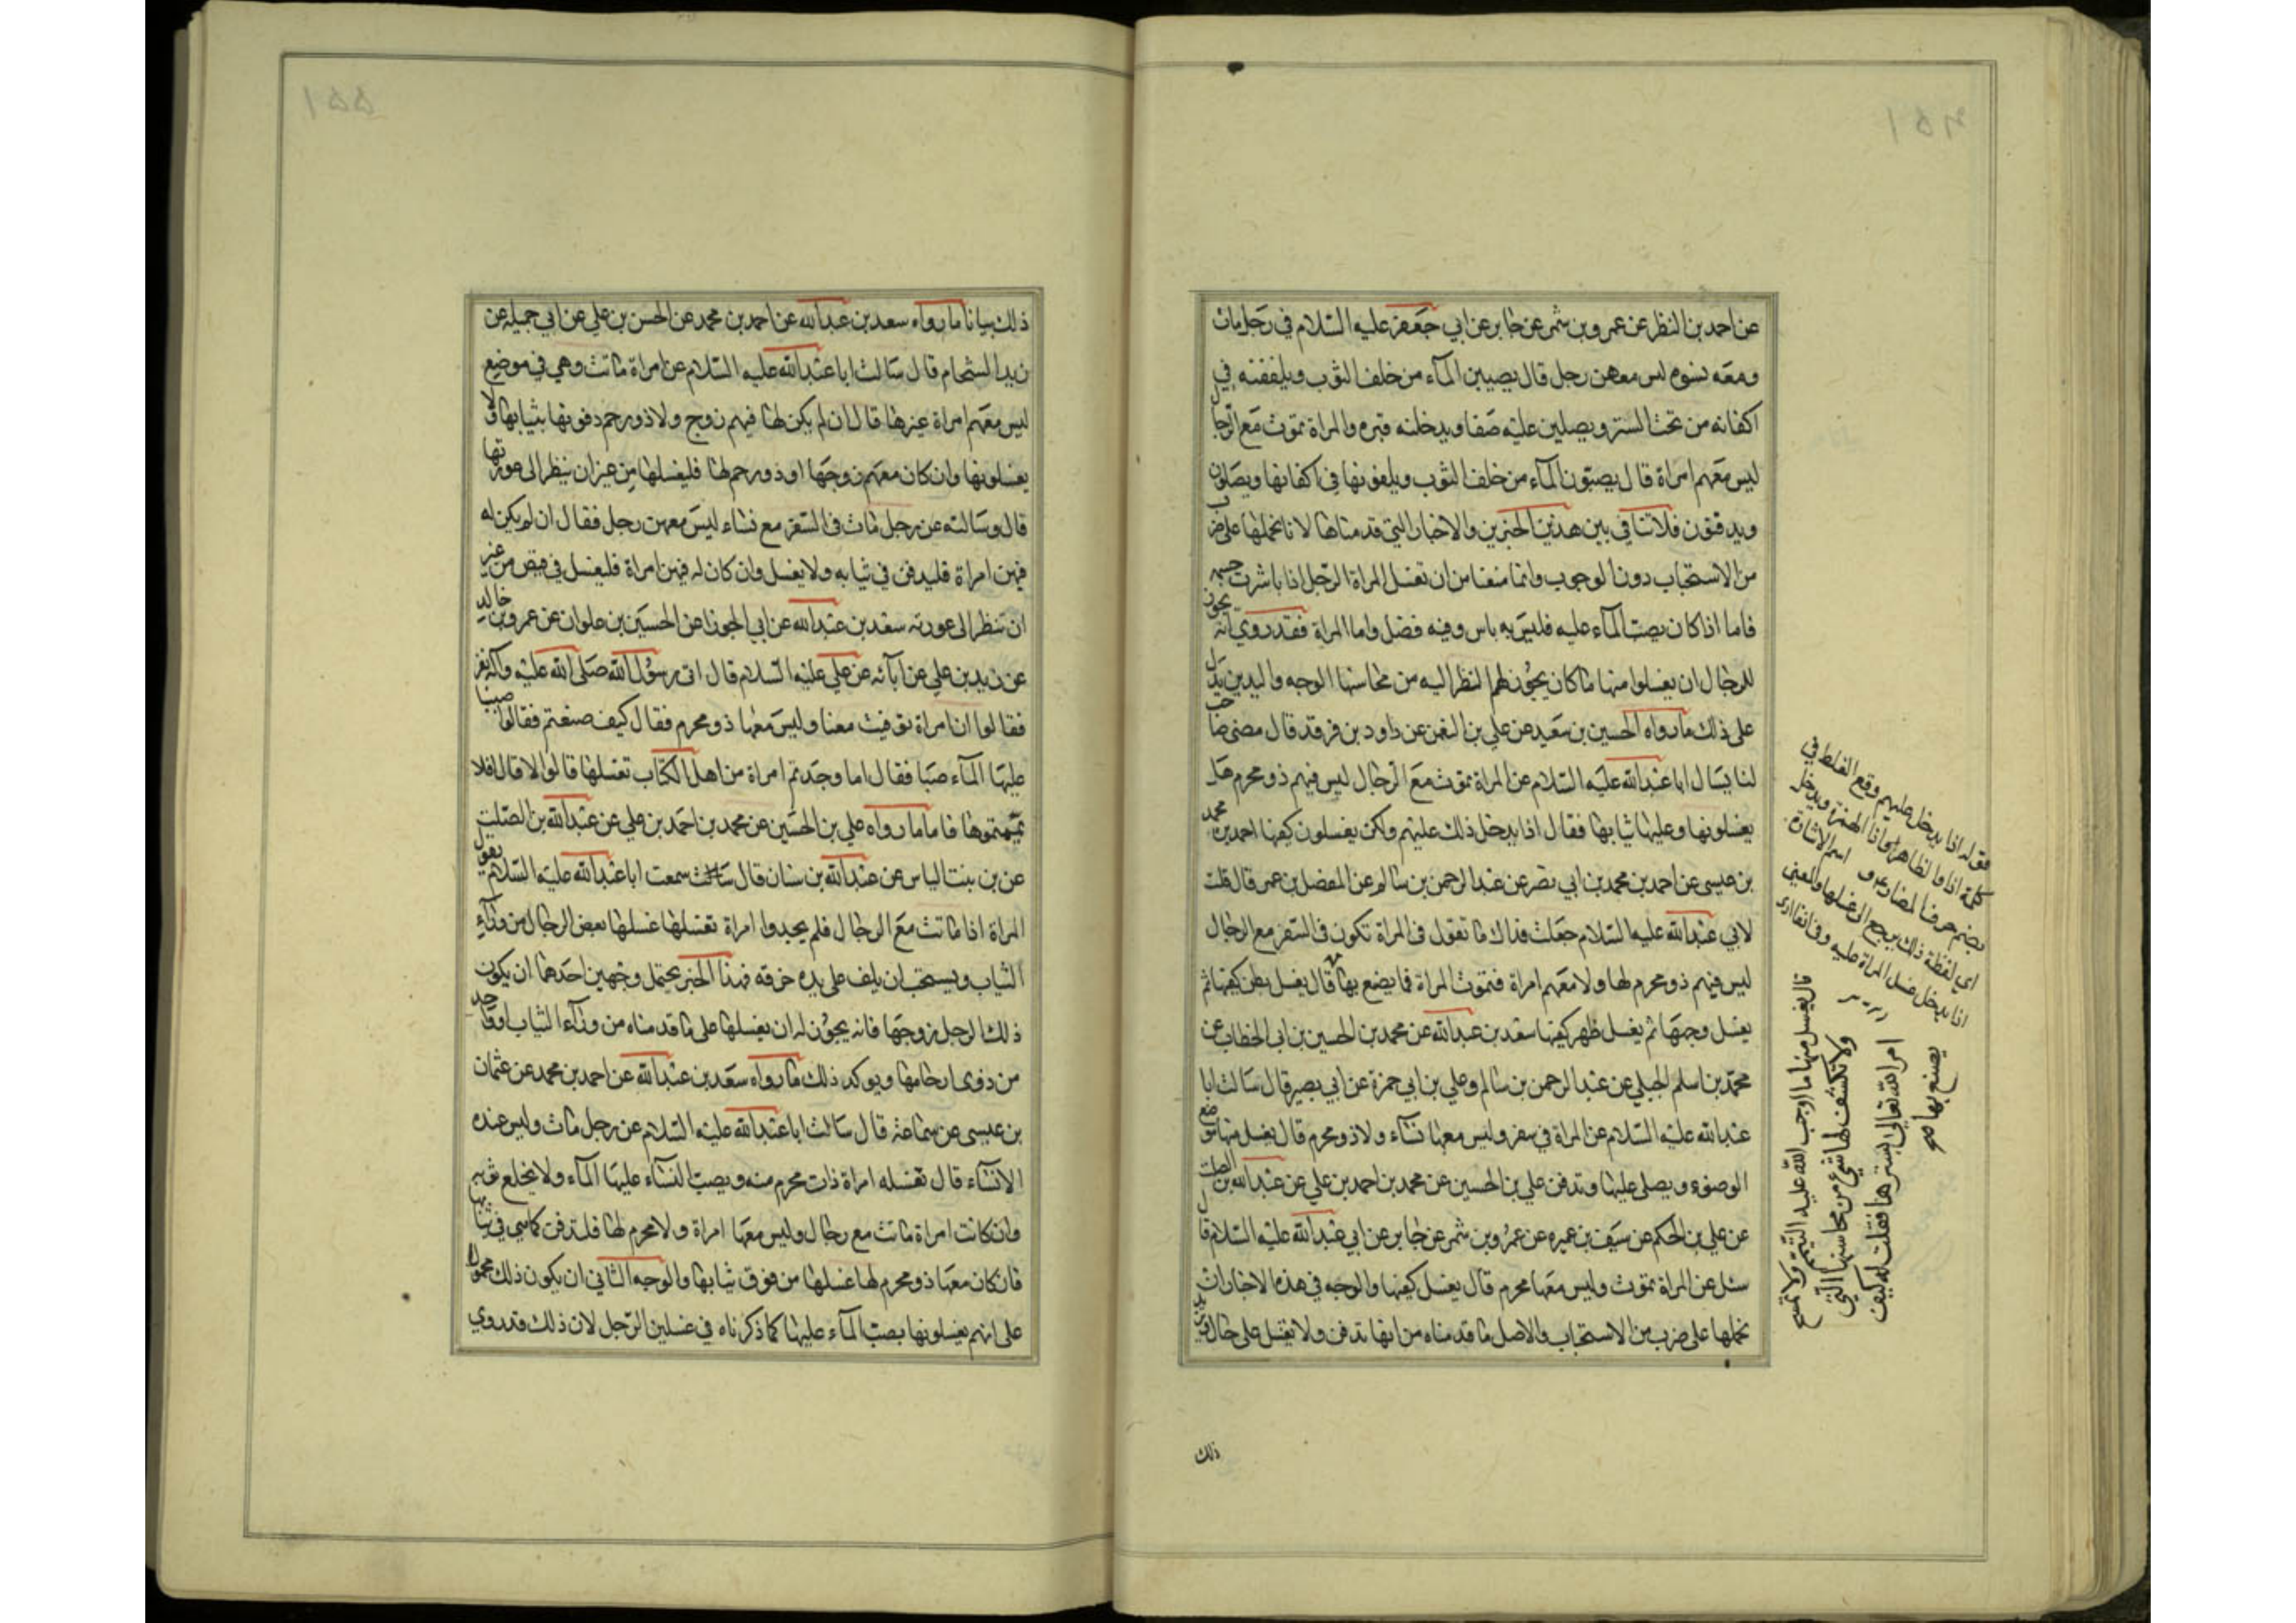 عن احمد بن النظر عن عمرو بن شمر عن جابر عن ابي جعفر عليه السلام في رجل مات
ومعه نسوه ليس معهن رجل قال يصببن المآء من خلف الثوب ويلففنه في
اكفانه من تحت الستر ويصلين عليه صفا ويدخلنه قبره والمراة تموت مع الرجال
ليس معهم امراة قال يصبّون المآء من خلف الثوب ويلفونها في اكفانها ويصلون
ويدفنون فلا تنافي بين هذين الخبرين والاخبار التي قدمناها لانا نحملها على ضرب
من الاستحباب دون الوجوب وانما منعنا من ان تغسل المراة الرجل اذا باشرت جسمه
فاما اذا كان يصب المآء عليه فليس به باس وفيه فضل واما المراة فقد روي انه يجوز
للرجال ان يغسلوا منها ما كان يجوز لهم النظر اليه من محاسنها الوجه واليدين يدل
على ذلك ما رواه الحسين بن سعيد عن علي بن النعمن عن داود بن فرقد قال مضى صاحب
لنا يسال ابا عبد الله عليه السلام عن المراة تموت مع الرجال ليس فيهم ذو محرم هل
يغسلونها وعليها ثيابها فقال اذا يدخل ذلك عليهم ولكن يغسلون كفيها احمد بن محمد
بن عيسى عن احمد بن محمد بن ابي نصر عن عبد الرحمن بن سالم عن المفضل بن عمر قال قلت
لابي عبد الله عليه السلام جعلت فداك ما تقول في المراة تكون في السفر مع الرجال
ليس فيهم ذو محرم لها ولا معهم امراة فتموت المراة فما يصنع بها قال يغسل بطن كفيها ثم
يغسل وجهها ثم يغسل ظهر كفيها سعد بن عبد الله عن محمد بن الحسين بن ابي الخطاب عن
محمد بن اسلم الجبلي عن عبد الرحمن بن سالم وعلي بن ابي حمزة عن ابي بصير قال سالت ابا
عبد الله عليه السلام عن المراة في سفر وليس معها نسآء ولا ذو محرم قال يغسل منها موضع
الوضوء ويصلى عليها وتدفن علي بن الحسين عن محمد بن احمد بن علي عن عبد الله بن الصلت
عن علي بن الحكم عن سيف بن عميره عن عمرو بن شمر عن جابر عن ابي عبد الله عليه السلام قال
سئل عن المراة تموت وليس معها محرم قال يغسل كفيها والوجه في هذه الاخبار ان
نحملها على ضرب من الاستحباب والاصل ما قدمناه من انها تدفن ولا تغسل على حال
ذلك
قوله اذا يدخل عليهم وقع الغلط في
كلمة اذا والظاهر
بضم حرف المضارعة اسم الاشارة
اي لفظة ذلك يرجع الى غسلها والمعنى
اذا يدخل غسل المراة عليه
قال يغسل منها ما اوجب الله عليه التيمم ولا تمسّ
ولا تكشف لها شيء من محاسنها التي
امر الله تعالى بسترها فقلت له كيف
يصنع بها صح
ذلك بيانا ما رواه سعد بن عبد الله عن احمد بن محمد عن الحسن بن علي عن ابي جميله عن
زيد الشحام قال سالت ابا عبد الله عليه السلام عن امراة ماتت وهي في موضع
ليس معهم امراة غيرها قال ان لم يكن لها فيهم زوج ولا ذو رحم دفونها بثيابها ولا
يغسلونها وان كان معهم زوجها او ذو رحم لها فليغسلها من غير ان ينظر الى عورتها
قال وسالته عن رجل مات في السفر مع نساء ليس معهن رجل فقال ان لم يكن له
فيهن امراة فليدفن في ثيابه ولا يغسل وان كان له فيهن امراة فليغسل في قميص من غير
ان تنظر الى عورته سعد بن عبد الله عن ابي الجوزا عن الحسين بن علوان عن عمرو بن خالد
عن زيد بن علي عن آبائه عن علي عليه السلام قال اتى رسول الله صلى الله عليه وآله نفر
فقالوا ان امراة توفيت معنا وليس معها ذو محرم فقال كيف صنعتم فقالوا صببنا
عليها المآء صبا فقال اما وجدتم امراة من اهل الكتاب تغسلها قالوا لا قال افلا
تيممتموها فاما ما رواه علي بن الحسين عن محمد بن احمد بن علي عن عبد الله بن الصلت
عن بن بنت الياس عن عبد الله بن سنان قال سالت سمعت ابا عبد الله عليه السلام يقول
المراة اذا ماتت مع الرجال فلم يجدوا امراة تغسلها غسلها بعض الرجال من ورآء
الثياب ويستحب ان يلف على يده خرقه فهذا الخبر يحتمل وجهين احدهما ان يكون
ذلك الرجل زوجها فانه يجوز له ان يغسلها على ما قدمناه من ورآء الثياب او واحد
من ذوي ارحامها ويوكد ذلك ما رواه سعد بن عبد الله عن احمد بن محمد عن عثمان
بن عيسى عن سماعة قال سالت ابا عبد الله عليه السلام عن رجل مات وليس عنده
الا نسآء قال تغسله امراة ذات محرم منه ويصب النسآء عليها المآء ولا يخلع ثوبه
وان كانت امراة ماتت مع رجال وليس معها امراة ولا محرم لها فلتدفن كما هي في ثيابها
فان كان معها ذو محرم لها غسلها من فوق ثيابها والوجه الثاني ان يكون ذلك محمولا
على انهم يغسلونها بصب المآء عليها كما ذكرناه في غسلهن الرجل لان ذلك قد روي